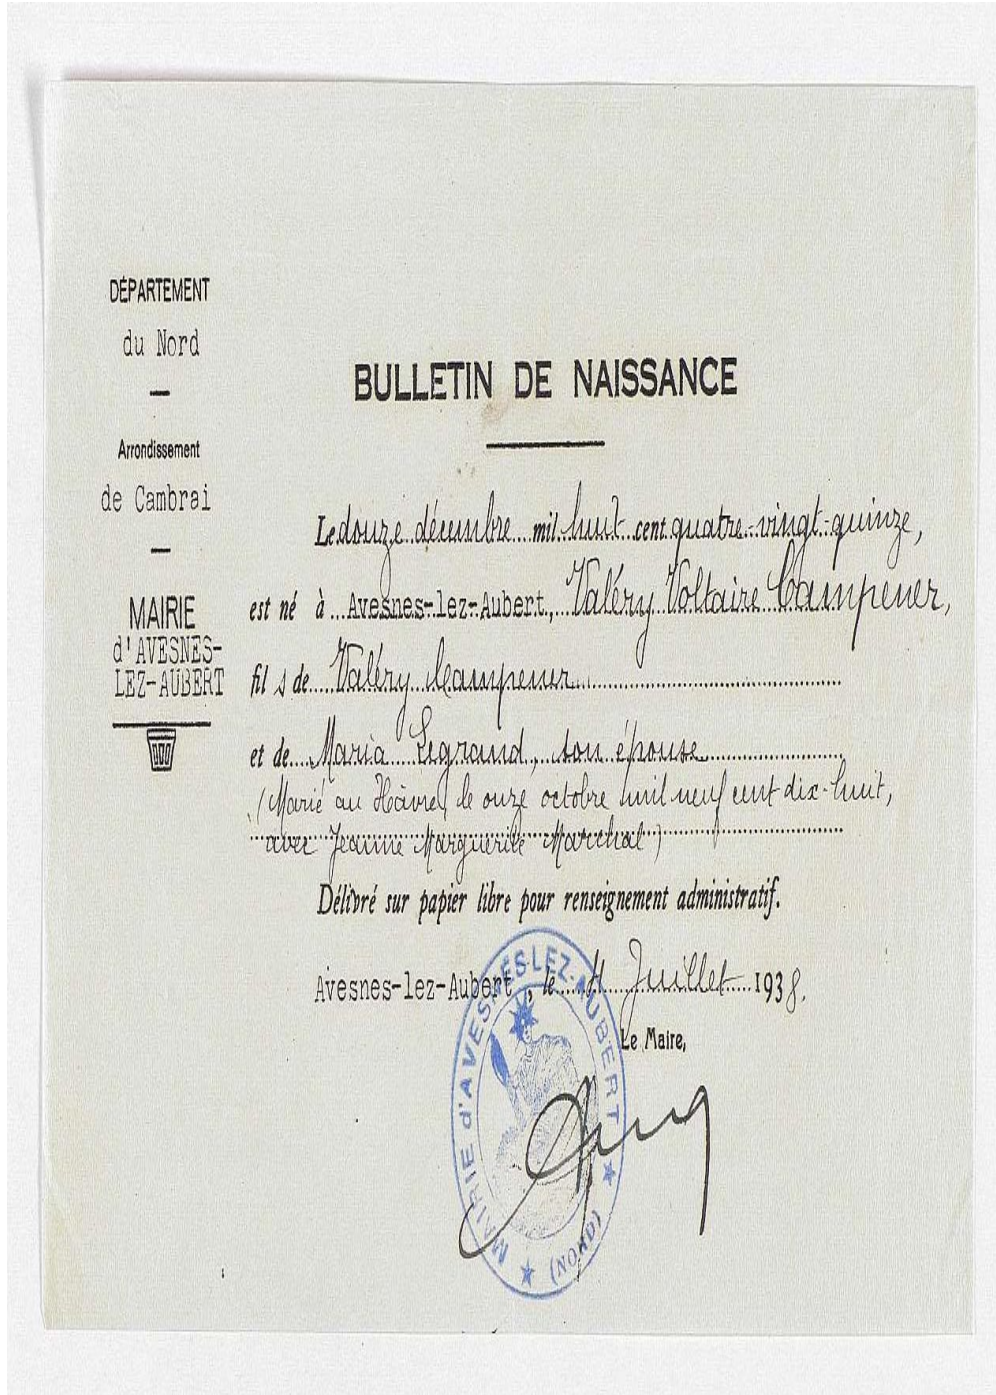 DÉPARTEMENT
du Nord
Arrondissement
de Cambrai
MAIRIE
d'AVESNES-
LEZ-AUBERT
BULLETIN DE NAISSANCE
Le douze décembre mil huit cent quatre-vingt-quinze,
est né à Avesnes-lez-Aubert, Valéry Voltaire Campener,
fils de Valéry Campener
et de Maria Legrand, son épouse
(Marié au Hâvre, le onze octobre mil neuf cent dix-huit,
avec Jeanne Marguerite Maréchal)
Délivré sur papier libre pour renseignement administratif.
Avesnes-lez-Aubert, le Juillet 1938.
Le Maire,
MAIRIE d'AVESNES-LEZ-AUBERT
(NORD)